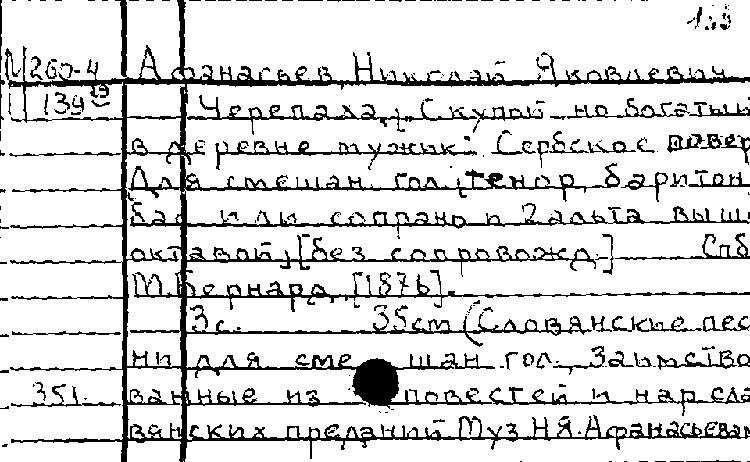 133
М 260-4 Афанасьев, Николай Яковлевич
139 19 Черепаха. Скупой но богатый
в деревне мужик: Сербское повер
Для смешан. гол., тенор, баритон,
бас или сопрано и 2 альта выш
октавой, [без сопровожд.] Спб
М. Бернард, [1876].
3 с. 35 cm (Словянские пес
ни для сме шан гол., Заимство
351. ванные из повестей и нар сла
вянских преданий Муз Н.Я. Афанасьева